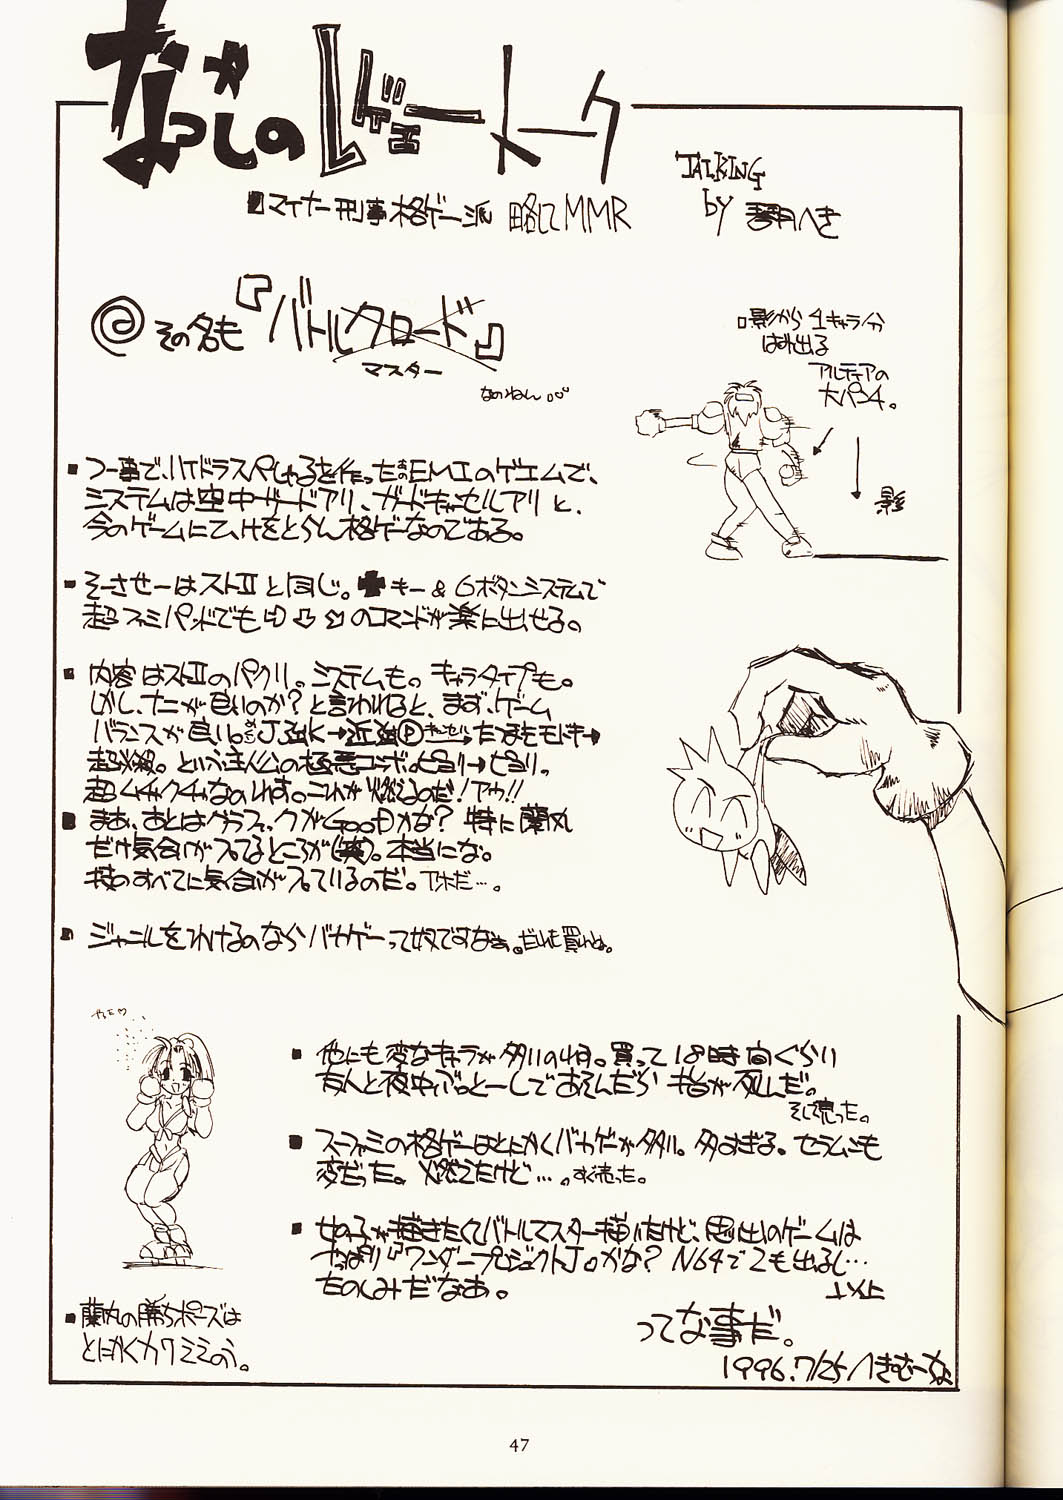 なつかしのレヴェートーク
TALKING
by 琴月へき
■マイナー刑事格ゲー派 略してMMR
@その名も『バトルクロード』
マスター
なのねん。
□影から1キャラ分
はみ出る
アルティアの
大パンチ。
影
■つー事で、ハイドラスペシャルを作ったあのEMIのゲエムで、
システムは空中ガードアリ、ガードキャンセルアリと、
今のゲームにひけをとらん格ゲーなのである。
■そーさせーはストⅡと同じ。✚キー&6ボタンシステムで
超ファミパッドでも⇨⇩⬂のコマンドが楽に出せる。
■内容はストⅡのパクリ。システムも。キャラタイプも。
しかし、ナニが良いのか?と言われると、まず、ゲーム
バランスが良い。J強K→近強Ⓟキャンセル→たつまきモドキ→
超必殺。という主人公の極悪コンボ。ピヨリ→ピヨリ。
超ムチャクチャなのれす。これが燃えるのだ!アゥ!!
■まあ、あとはグラフィックがGooDかな?特に蘭丸
だけ気合いが入ってるところが(笑)。本当にな。
技のすべてに気合が入っているのだ。アホだ…。
■ジャンルをわけるのならバカゲーって奴ですなぁ。だれも買わね。
やったァ♡
■他にも変なキャラが多いのよ。買って18時間ぐらい
友人と夜中ぶっとーしであそんだら指が死んだ。
そして売った。
■スーファミの格ゲーはとにかくバカゲーが多い。多すぎる。セラムンも
変だった。燃えたけど…。すぐ売った。
■女の子が描きたくてバトルマスター描いたけど、思い出のゲームは
やっぱり『ワンダープロジェクトJ』かな?N64で2も出るし…
たのしみだなあ。
以上
ってな事だ。
1996.7/25 へきむーな
■蘭丸の勝ちポーズは
とにかくカワミミのう。
47